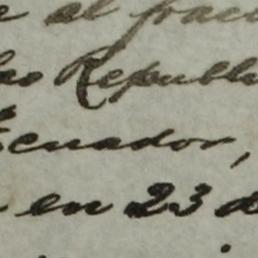 e el frac
las Republi
Ecuador,
en 23 d